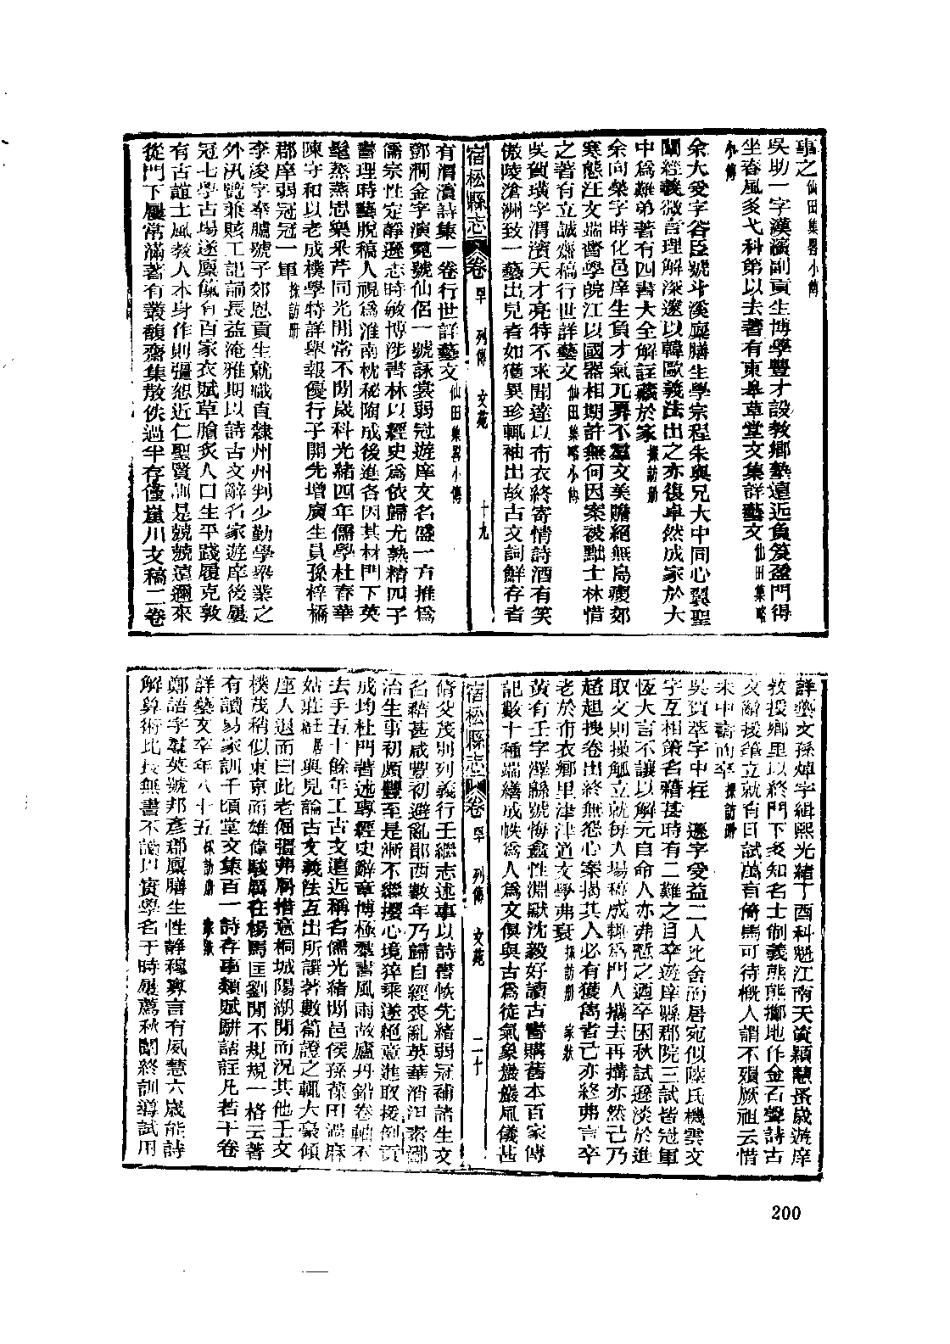 事之仙田集畧小傳
吳助一字漢濱副貢生博學豐才設教鄉塾遠近負笈盈門得
坐春風多弋科第以去著有東皋草堂文集詳藝文仙田集略
小傳
余大受字谷臣號斗溪廩膳生學宗程朱與兄大中同心翼聖
闡經義微言理解深邃以韓歐義法出之亦復卓然成家於大
中為難弟著有四書大全解註藏於家採訪册
余向榮字時化邑庠生負才氣兀奡不羣文美贍絕無島瘦郊
寒態汪文端督學皖江以國器相期許無何因案被黜士林惜
之著有立誠齋稿行世詳藝文仙田集略小傳
吳賀璜字渭濱天才亮特不求聞達以布衣終寄情詩酒有笑
傲陵滄洲致一藝出見者如獲異珍輒袖出故古文詞鮮存者
宿松縣志 卷四十 列傳 文苑 十九
有渭濱詩集一卷行世詳藝文仙田集畧小傳
鄧澗金字演霓號仙侶一號詠裳弱冠遊庠文名盛一方推為
儒宗性定靜遜志時敏博涉書林以經史為依歸尤熟精四子
書理時藝脫稿人視為淮南枕秘陶成後進各因其材門下英
髦蒸蒸思樂釆芹同光間常不閒歲科光緒四年儒學杜春華
陳守和以老成樸學特詳舉報優行子開先增廣生員孫梓橋
郡庠弱冠冠一軍採訪册
李凌字泰臚號子郊恩貢生就職直隸州州判少勤學舉業之
外汎覽兼賅工記誦長益淹雅期以詩古文辭名家遊庠後屢
冠七學古場遂廩餼有百家衣賦草膾炙人口生平踐履克敦
有古誼士風教人本身作則彌恕近仁聖賢訓是兢兢遠邇來
從門下屢常滿著有叢馥齋集散佚過半存僅嵐川文稿二卷
詳藝文孫婥字緝熙光緒丁酉科魁江南天資穎慧蚤歲遊庠
教授鄉里以終門下多知名士制義熊熊擲地作金石聲詩古
文辭援筆立就有日試萬言倚馬可待概人謂不殞厥祖云惜
未中壽而卒採訪册
吳賁萃字中柱 遜字受益二人比舍而居宛似陸氏機雲文
字互相策名藉甚時有二難之目卒遊庠縣郡院三試皆冠軍
恆大言不讓以解元自命人亦弗慍之迺卒困秋試遜淡於進
取文則操觚立就每入場稿成輒為門人攜去再搆亦然己乃
趑趄拽卷出終無怨心案揭其人必有獲雋者己亦終弗言卒
老於布衣鄉里津津道文學弗衰採訪册 家狀
黃有壬字澤縣號悔盦性淵默沈毅好讀古書購舊本百家傳
記數十種端繕成帙為人為文俱與古為徒氣象嚴嚴風儀甚
宿松縣志 卷四十 列傳 文苑 二十
脩父茂別列義行壬繼志述事以詩書恢先緒弱冠補諸生文
名藉甚咸豐初避亂郡西數年乃歸自經喪亂英華消沮素鄙
治生事初頗豐至是漸不繼攖心境猝乘遂絕意進取援例貢
成均杜門著述專經史辭章博極羣書風雨敝廬丹鉛卷軸不
去手五十餘年工古文遠近稱名儒光緒間邑侯孫葆田過麻
姑莊壬居與見論古文義法互出所譔著數萹證之輒大豪傾
座人退而曰此老倔強弗屑措意桐城陽湖閒而況其他壬文
樸茂稍似東京而雄偉駿厲在楊馬匡劉閒不規規一格云著
有讀易家訓千頃堂文集百一詩存事類賦駢詁註凡若干卷
詳藝文卒年八十五採訪册 家狀
鄭語字羣英號邦彥郡廩膳生性靜穆寡言有夙慧六歲能詩
解算術比長無書不讀以實學名于時屢薦秋闈終訓導試用